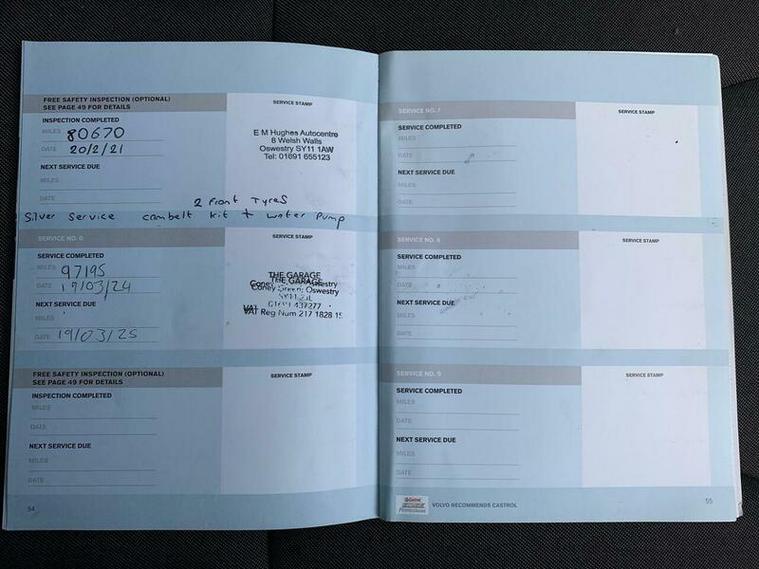 FREE SAFETY INSPECTION (OPTIONAL)
SEE PAGE 49 FOR DETAILS
SERVICE STAMP
INSPECTION COMPLETED
MILES 80670
DATE 20/2/21
NEXT SERVICE DUE
MILES
DATE
E M Hughes Autocentre
8 Welsh Walls
Oswestry SY11 1AW
Tel: 01691 655123
2 Front Tyres
Silver Service cambelt kit + water pump
SERVICE NO. 6
SERVICE STAMP
SERVICE COMPLETED
MILES 97195
DATE 19/03/24
NEXT SERVICE DUE
MILES
DATE 19/03/25
THE GARAGE
THE GARAGE
Coney Green, Oswestry
VAT Reg Num 217 1828 15
FREE SAFETY INSPECTION (OPTIONAL)
SEE PAGE 49 FOR DETAILS
SERVICE STAMP
INSPECTION COMPLETED
MILES
DATE
NEXT SERVICE DUE
MILES
DATE
54
SERVICE NO. 7
SERVICE STAMP
SERVICE COMPLETED
MILES
DATE
NEXT SERVICE DUE
MILES
DATE
SERVICE NO. 8
SERVICE STAMP
SERVICE COMPLETED
MILES
DATE
NEXT SERVICE DUE
MILES
DATE
SERVICE NO. 9
SERVICE STAMP
SERVICE COMPLETED
MILES
DATE
NEXT SERVICE DUE
MILES
DATE
Castrol
VOLVO RECOMMENDS CASTROL
55